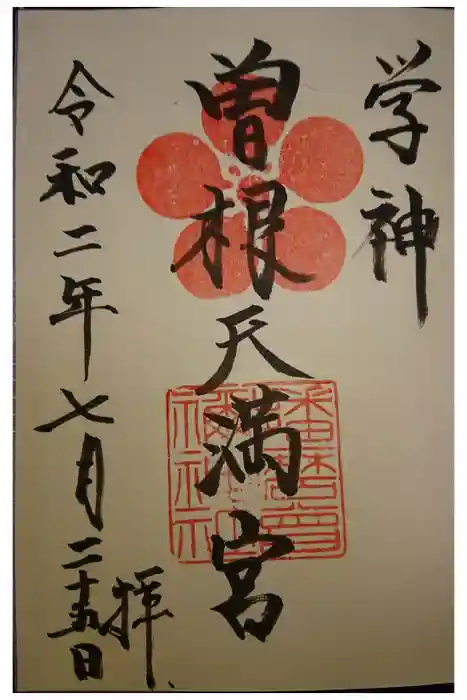 学神
曽根天満宮
令和二年七月二十五日
拝